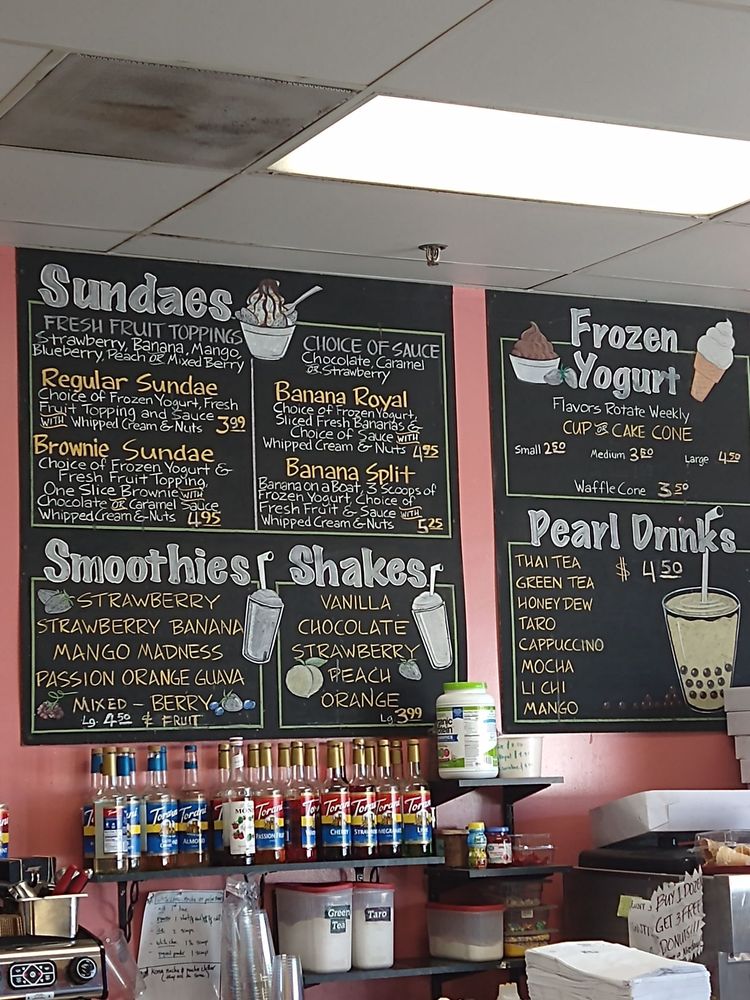 Sundaes
FRESH FRUIT TOPPINGS
Strawberry, Banana, Mango,
Blueberry, Peach OR Mixed Berry
Regular Sundae
Choice of Frozen Yogurt, Fresh
Fruit Topping and Sauce
WITH Whipped Cream & Nuts 3.99
Brownie Sundae
Choice of Frozen Yogurt &
Fresh Fruit Topping,
One Slice Brownie WITH
Chocolate OR Caramel Sauce
Whipped Cream & Nuts 4.95
CHOICE OF SAUCE
Chocolate, Caramel
OR Strawberry
Banana Royal
Choice of Frozen Yogurt,
Sliced Fresh Bananas &
Choice of Sauce WITH
Whipped Cream & Nuts 4.95
Banana Split
Banana on a Boat, 3 Scoops of
Frozen Yogurt, Choice of
Fresh Fruit & Sauce WITH
Whipped Cream & Nuts 5.25
Smoothies
STRAWBERRY
STRAWBERRY BANANA
MANGO MADNESS
PASSION ORANGE GUAVA
MIXED - BERRY
Lg. 4.50 & FRUIT
Shakes
VANILLA
CHOCOLATE
STRAWBERRY
PEACH
ORANGE
Lg 3.99
Frozen
Yogurt
Flavors Rotate Weekly
CUP OR CAKE CONE
Small 2.50 Medium 3.50 Large 4.50
Waffle Cone 3.50
Pearl Drinks
$ 4.50
THAI TEA
GREEN TEA
HONEYDEW
TARO
CAPPUCCINO
MOCHA
LI CHI
MANGO
Torani
Torani
ALMOND
Torani
PASSION FRUIT
Torani
CHERRY
Torani
Torani
Torani
Green
Tea
Taro
BUY 1 DOZEN
GET 3 FREE
DONUTS!!!